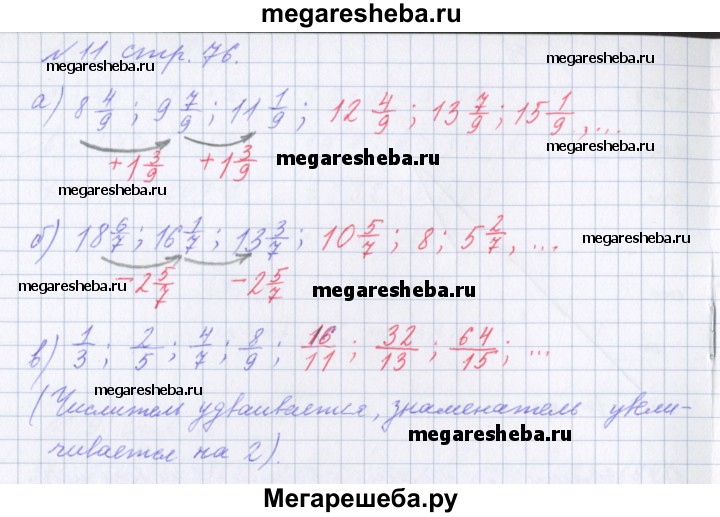 megaresheba.ru
№ 11 стр. 76.
megaresheba.ru megaresheba.ru
а) 8 4/9; 9 7/9; 11 1/9; 12 4/9; 13 7/9; 15 1/9, ...
+1 3/9 +1 3/9 megaresheba.ru
megaresheba.ru
б) 18 6/7; 16 1/7; 13 3/7; 10 5/7; 8; 5 2/7, ...
megaresheba.ru
megaresheba.ru -2 5/7 -2 5/7 megaresheba.ru
в) 1/3; 2/5; 4/7; 8/9; 16/11; 32/13; 64/15; ...
megaresheba.ru
(Числитель удваивается, знаменатель увели-
megaresheba.ru
чивается на 2).
Мегарешеба.ру